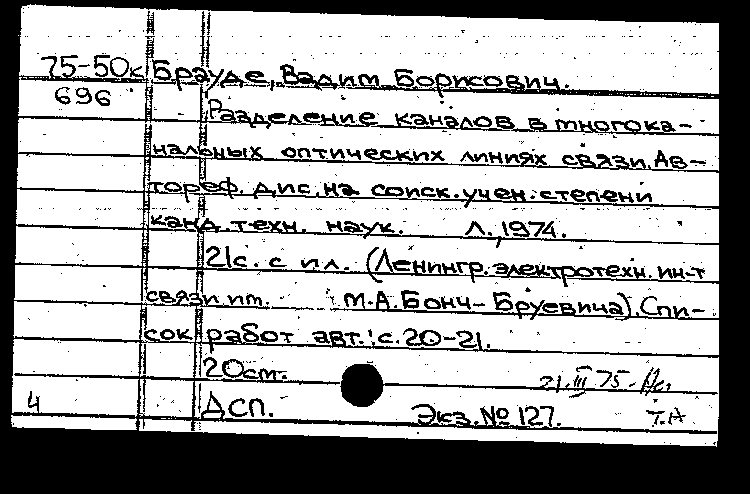 75-50к Брауде, Вадим Борисович.
696
Разделение каналов в многока-
нальных оптических линиях связи. Ав-
тореф. дис. на соиск. учен. степени
канд. техн. наук. Л., 1974.
21с. с ил. (Ленингр. электротехн. ин-т
связи им. М.А. Бонч-Бруевича). Спи-
сок работ авт.: с. 20-21.
20см.
21.III 75
4 ДСП. Экз. № 127. Т.А